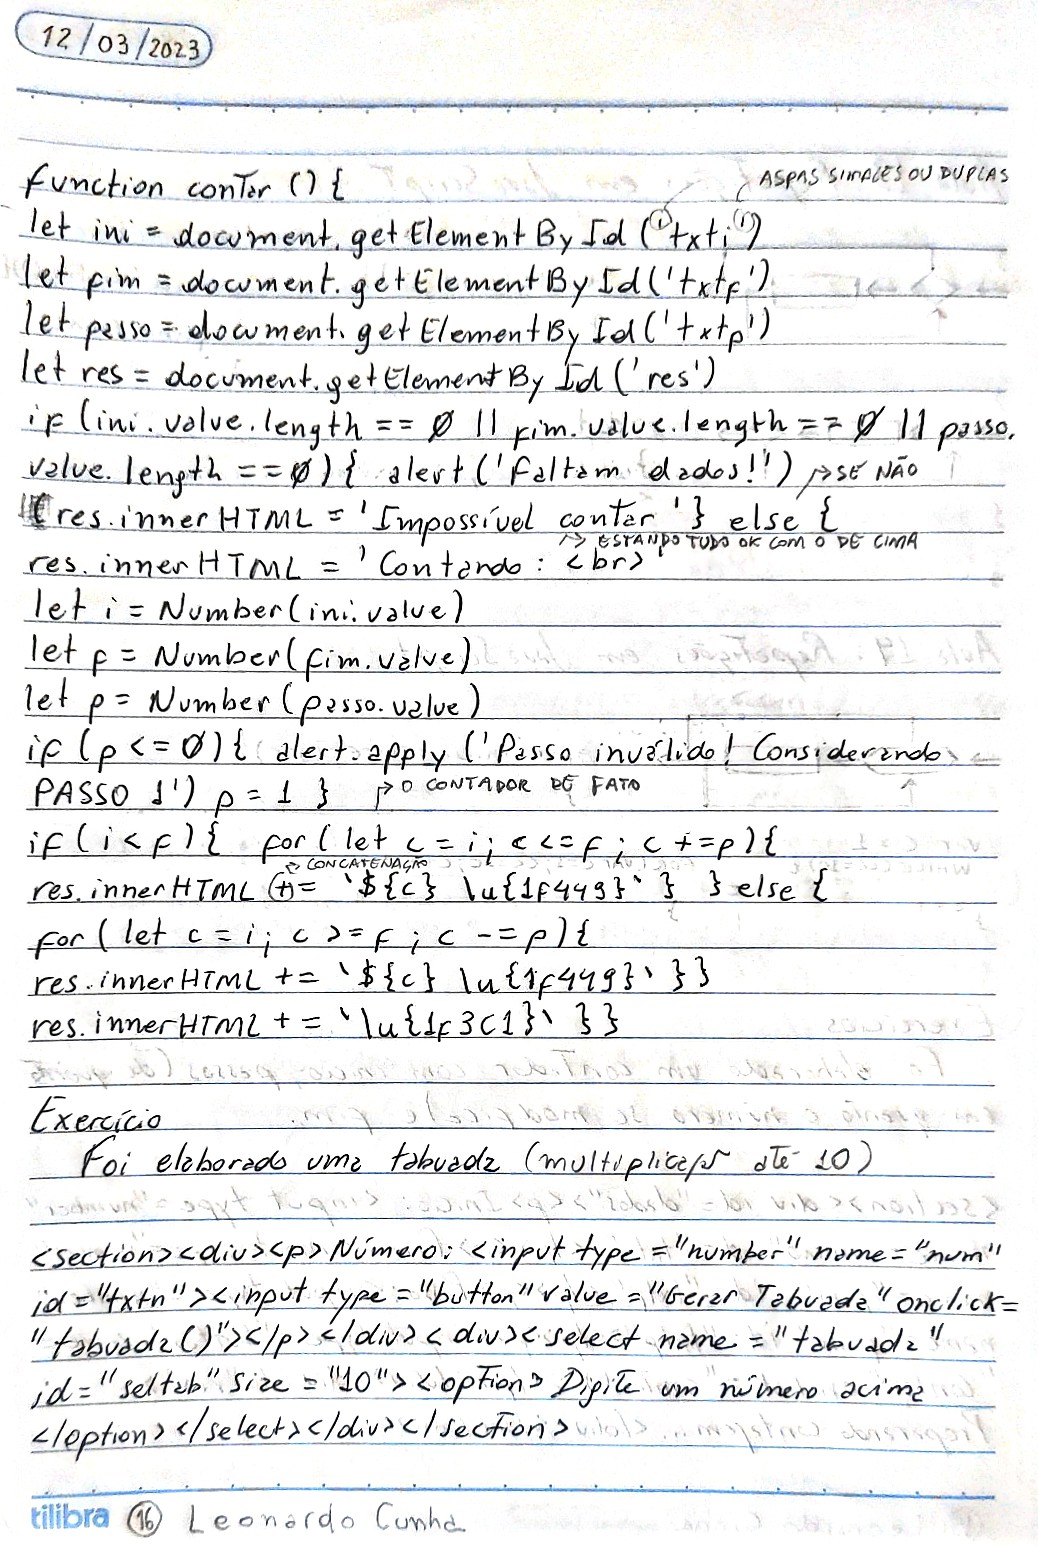 12/03/2023
ASPAS SIMPLES OU DUPLAS
function contar () {
let ini = document.getElementById('txti')
let fim = document.getElementById('txtf')
let passo = document.getElementById('txtp')
let res = document.getElementById('res')
if (ini.value.length == 0 || fim.value.length == 0 || passo.
value.length == 0) { alert('Faltam dados!') → SE NÃO
res.innerHTML = 'Impossível contar '} else {
→ ESTANDO TUDO OK COM O DE CIMA
res.innerHTML = 'Contando: <br>'
let i = Number(ini.value)
let f = Number(fim.value)
let p = Number(passo.value)
if (p <= 0) { alert.apply ('Passo inválido! Considerando
PASSO 1') p = 1 } → O CONTADOR DE FATO
if (i < f) { for (let c = i; c <= f; c += p) {
→ CONCATENAÇÃO
res.innerHTML += `${c} \u{1f449}` } } else {
for (let c = i; c >= f; c -= p) {
res.innerHTML += `${c} \u{1f449}` }}
res.innerHTML += `\u{1f3C1}` }}
Exercício
Foi elaborado uma tabuada (multiplicação até 10)
<section><div><p>Número: <input type="number" name="num"
id="txtn"><input type="button" value="Gerar Tabuada" onclick=
"tabuada()"></p></div><div><select name="tabuada"
id="seltab" size="10"><option>Digite um número acima
</option></select></div></section>
tilibra 16 Leonardo Cunha